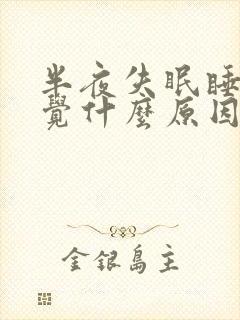 半夜失眠睡
覺什麼原因
金銀島主